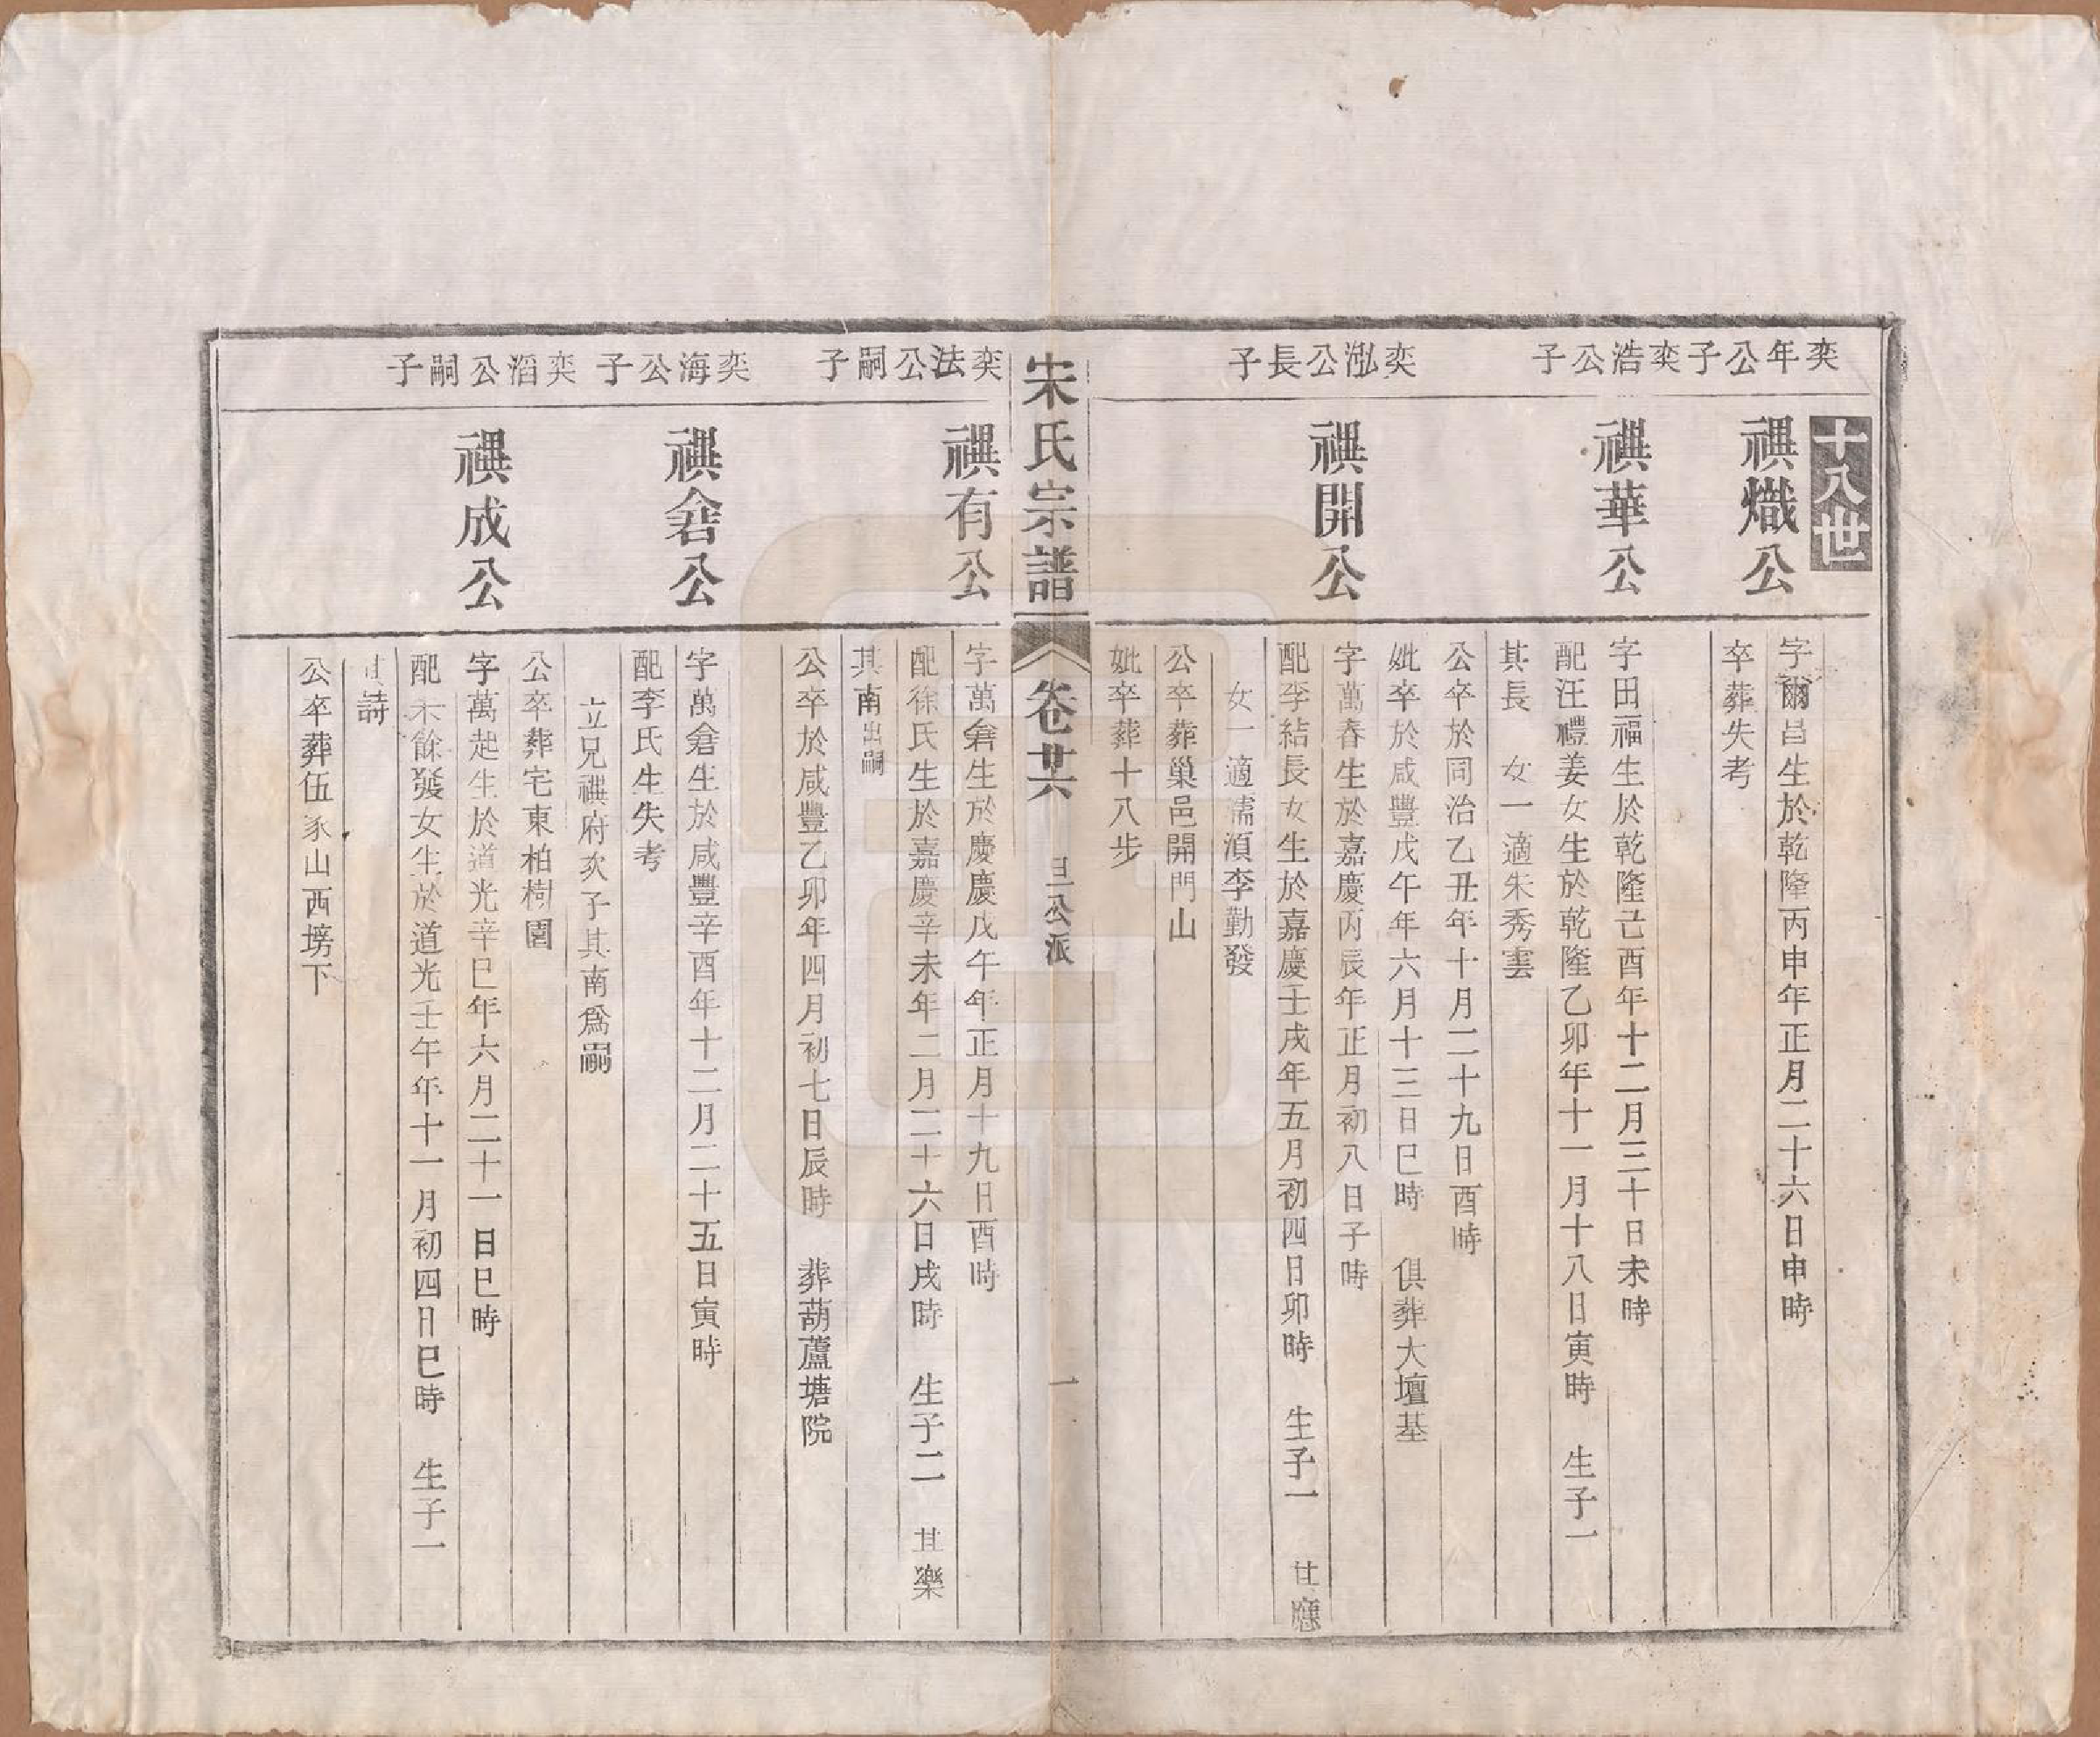 十八世
奕年公子
禩熾公
字爾昌生於乾隆丙申年正月二十六日申時
卒葬失考
奕浩公子
禩華公
字田福生於乾隆己酉年十二月三十日未時
配汪禮姜女生於乾隆乙卯年十一月十八日寅時 生子一
其長 女一適朱秀雲
公卒於同治乙丑年十月二十九日酉時
妣卒於咸豐戊午年六月十三日巳時 俱葬大壇基
奕泓公長子
禩開公
字萬春生於嘉慶丙辰年正月初八日子時
配李結長女生於嘉慶壬戌年五月初四日卯時 生子一 其應
女一適濡湏李勤發
公卒葬巢邑開門山
妣卒葬十八步
宋氏宗譜
卷廿六
旦公派
一
奕法公嗣子
禩有公
字萬倉生於慶慶戊午年正月十九日酉時
配徐氏生於嘉慶辛未年二月二十六日戌時 生子二 其樂
其南出嗣
公卒於咸豐乙卯年四月初七日辰時 葬葫蘆塘院
奕海公子
禩倉公
字萬倉生於咸豐辛酉年十二月二十五日寅時
配李氏生失考
立兄禩府次子其南爲嗣
公卒葬宅東柏樹園
奕滔公嗣子
禩成公
字萬起生於道光辛巳年六月二十一日巳時
配宋餘發女生於道光壬午年十一月初四日巳時 生子一
其詩
公卒葬伍家山西塝下